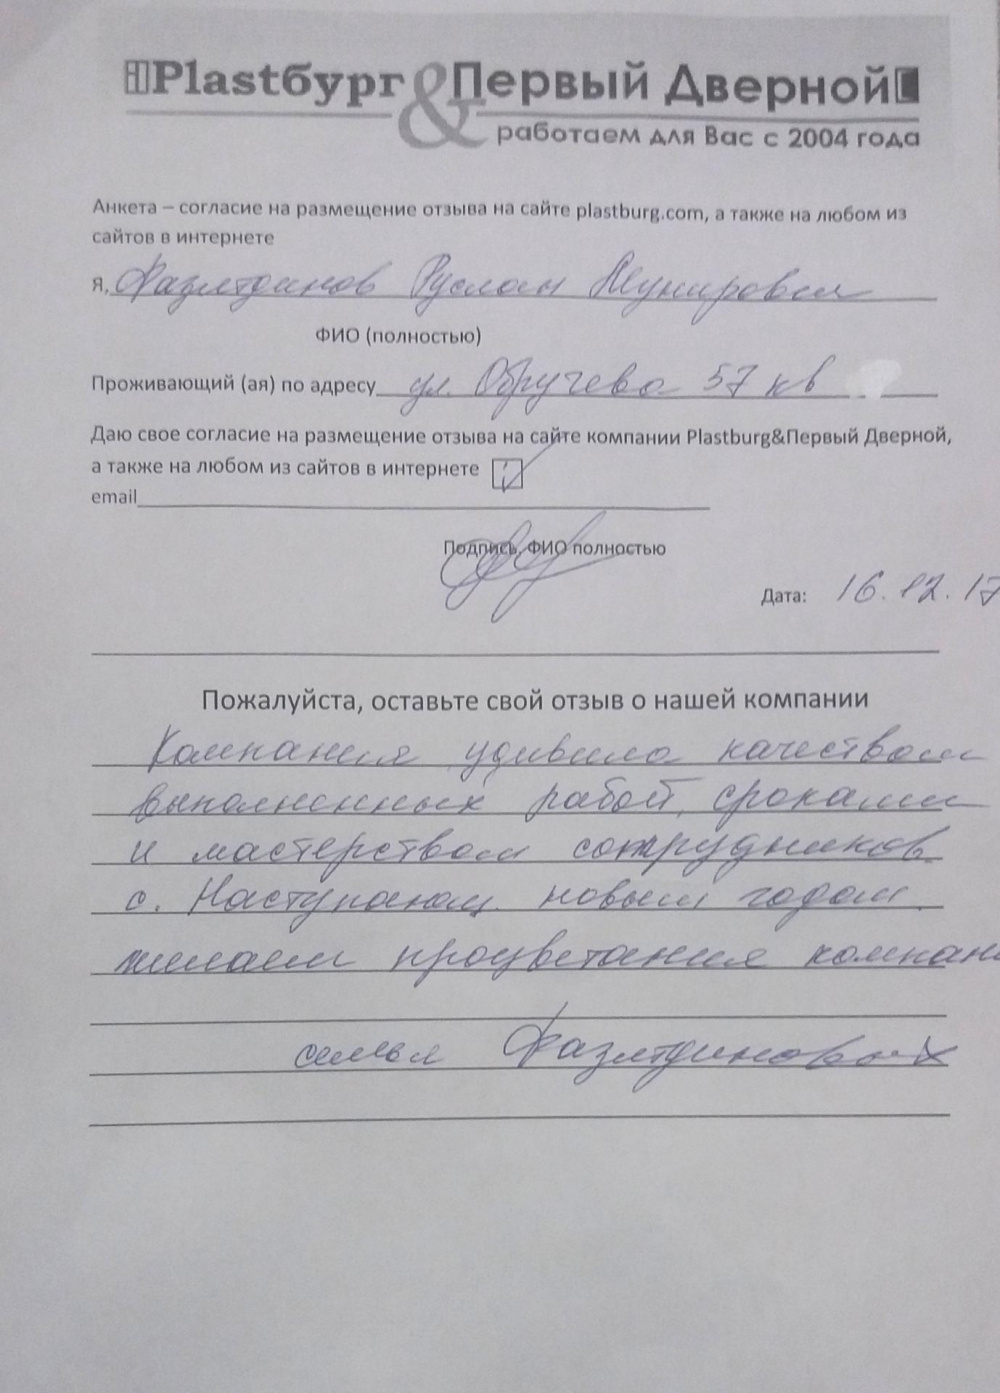 Plastбург & Первый Дверной
работаем для Вас с 2004 года
Анкета – согласие на размещение отзыва на сайте plastburg.com, а также на любом из
сайтов в интернете
Я, Фазлтдинов Руслан Мунирович
ФИО (полностью)
Проживающий (ая) по адресу ул. Обручева 57 кв
Даю свое согласие на размещение отзыва на сайте компании Plastburg&Первый Дверной,
а также на любом из сайтов в интернете
email
Подпись, ФИО полностью
Дата: 16.12.17
Пожалуйста, оставьте свой отзыв о нашей компании
Компания удивила качеством
выполненных работ, сроками
и мастерством сотрудников
с. Наступающ. новым годом.
желаем процветания компан
семья Фазлтдиновых